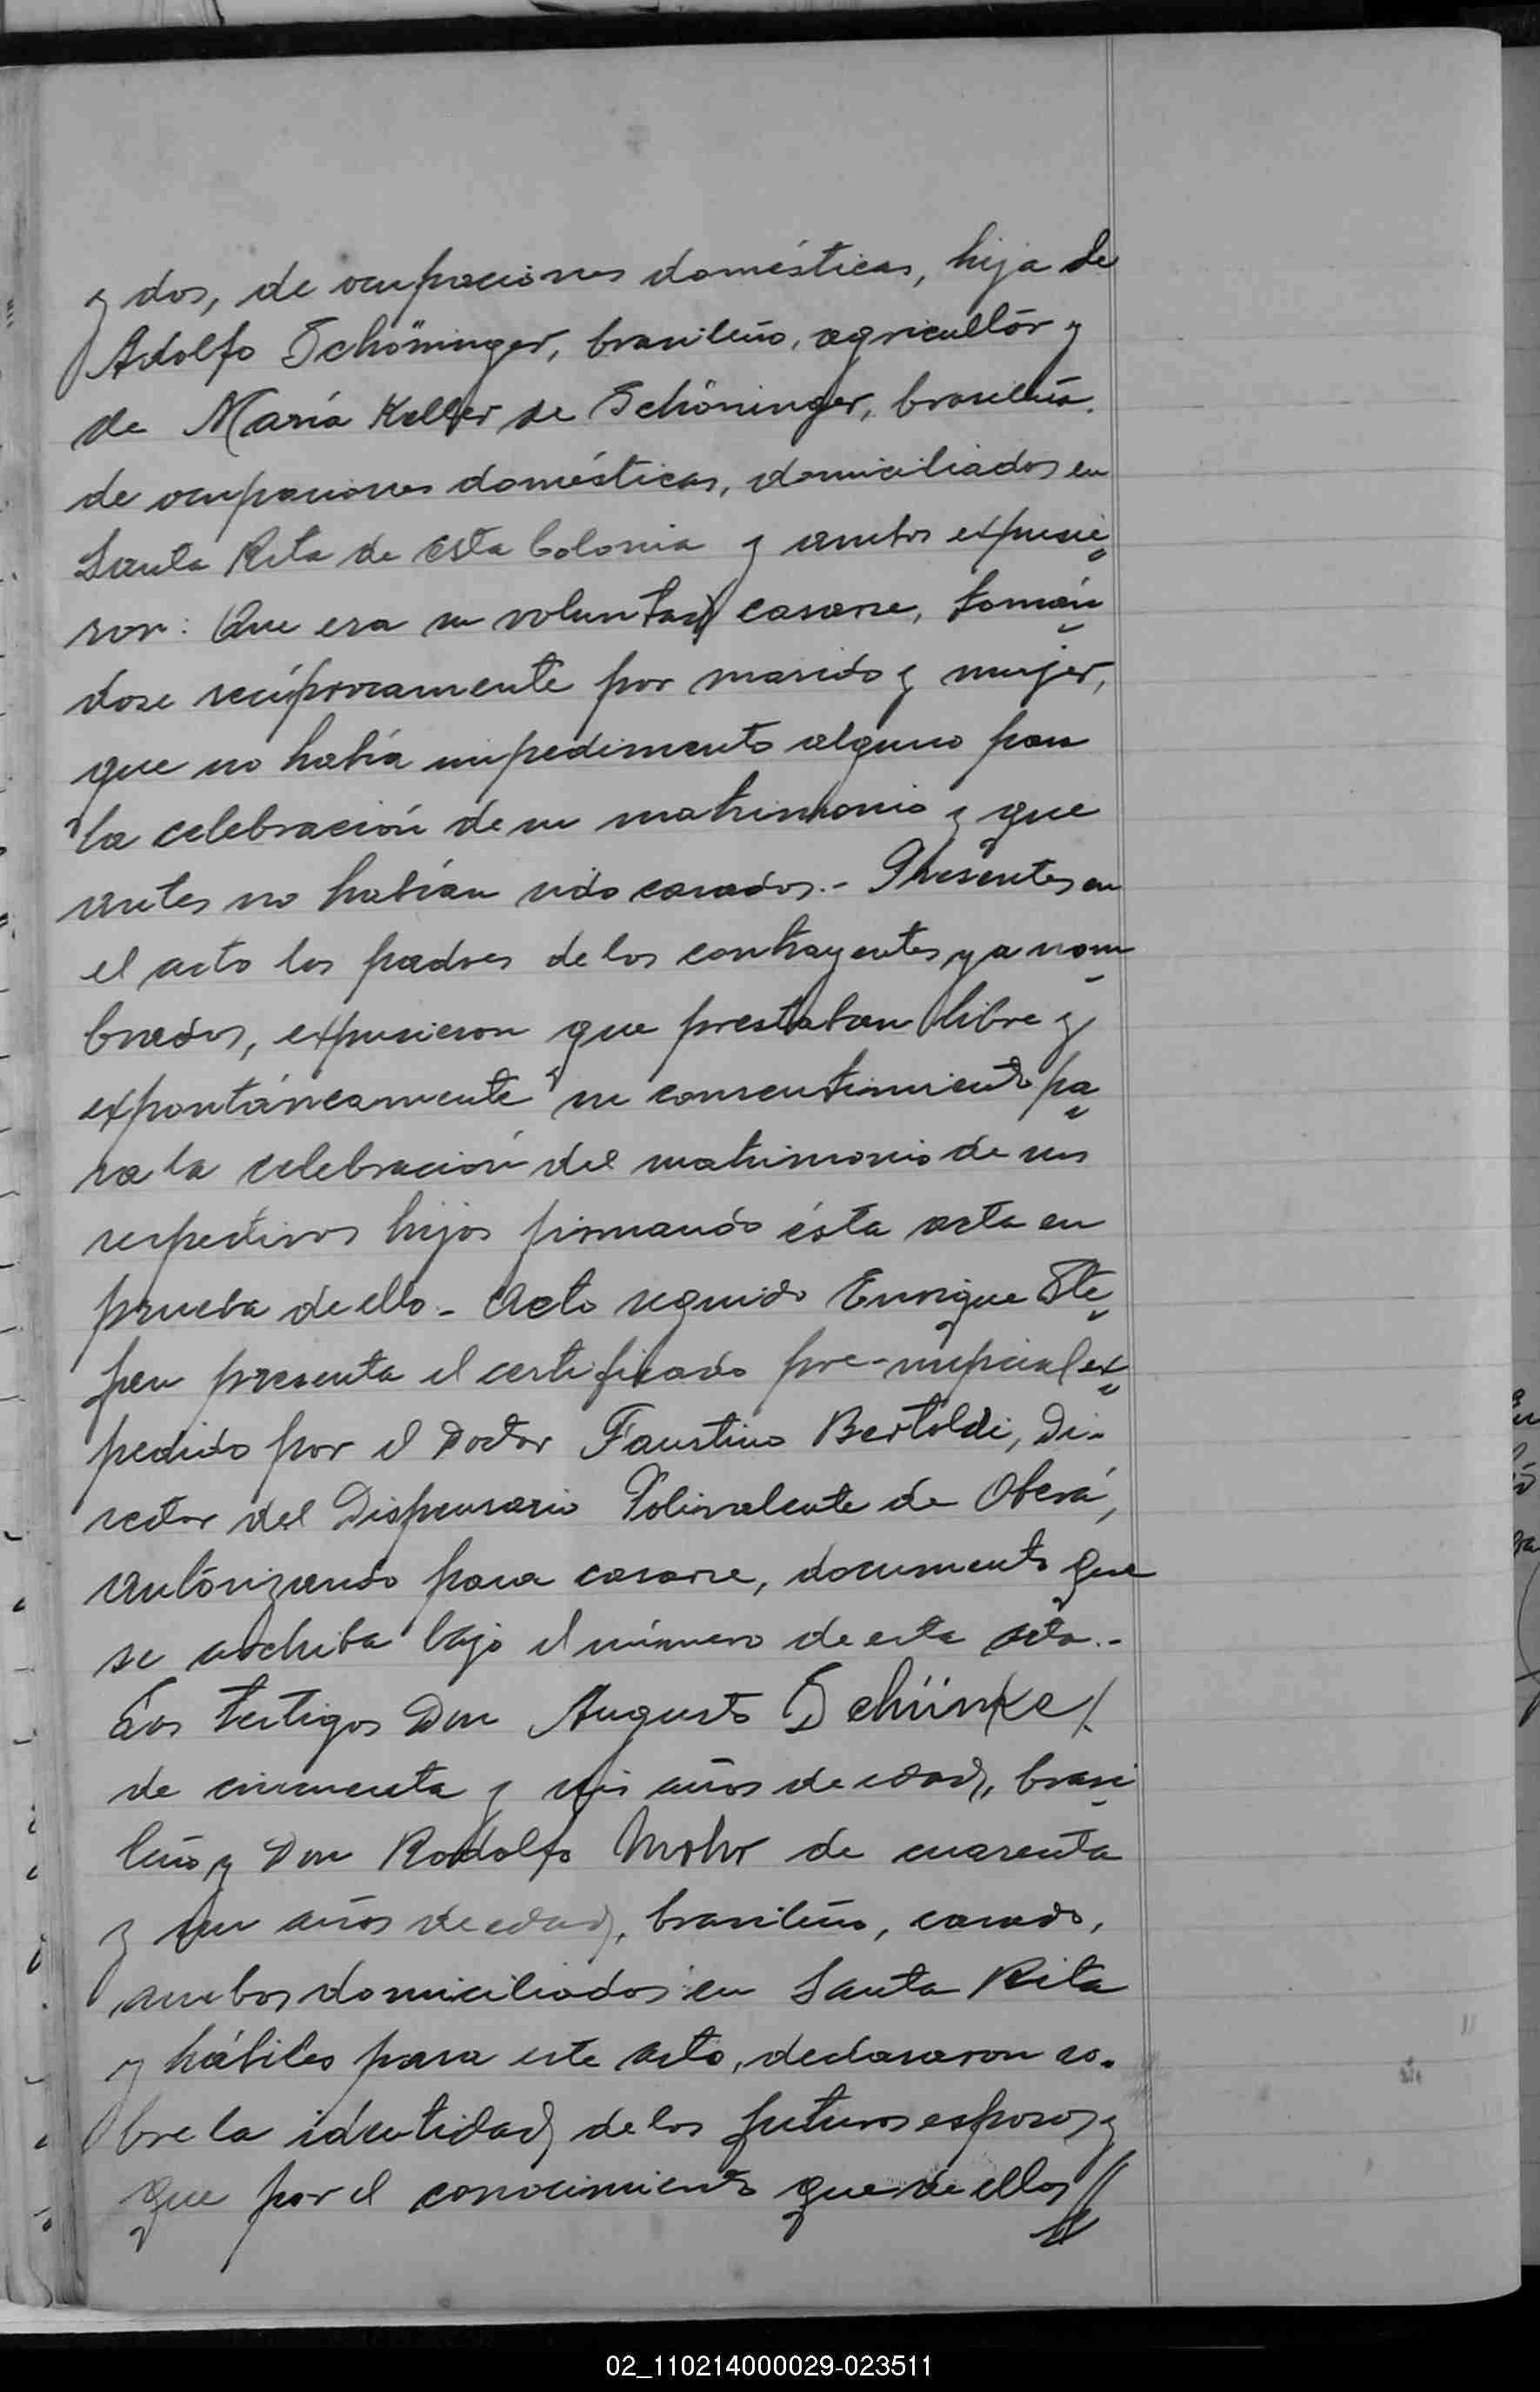 y dos, de ocupaciones domésticas, hija de
Adolfo Schöninger, brasileño, agricultór y
de María Keller de Schöninger, brasileña,
de ocupaciones domésticas, domiciliados en
Santa Rita de esta Colonia y ambos expusie
ron: Que era su voluntad casarse, tomán
dose recíprocamente por marido y mujer,
que no había impedimento alguno para
la celebración de su matrimonio y que
antes no habían sido casados.- Presentes en
el acto los padres de los contrayentes ya nom
brados, expusieron que prestaban libre y
expontáneamente su consentimiento pa
ra la celebración del matrimonio de sus
respectivos hijos firmando ésta acta en
prueba de ello.- Acto seguido Enrique Ste
pen presenta el certificado pre-nupcial ex
pedido por el Doctor Faustino Bertoldi, Di-
rector del Dispensario Polivalente de Oberá,
autórizando para casarse, documento que
se archiba bajo el número de esta acta.-
Los testigos Don Augusto Schünke/.
de cincuenta y seis años de edad, brasi
leño y Don Rodolfo Mohr de cuarenta
y un años de edad, brasileño, casado,
ambos domiciliados en Santa Rita
y hábiles para este acto, declararon so-
bre la identidad de los futuros esposos y
que por el conocimiento que de ellos//
02_110214000029-023511